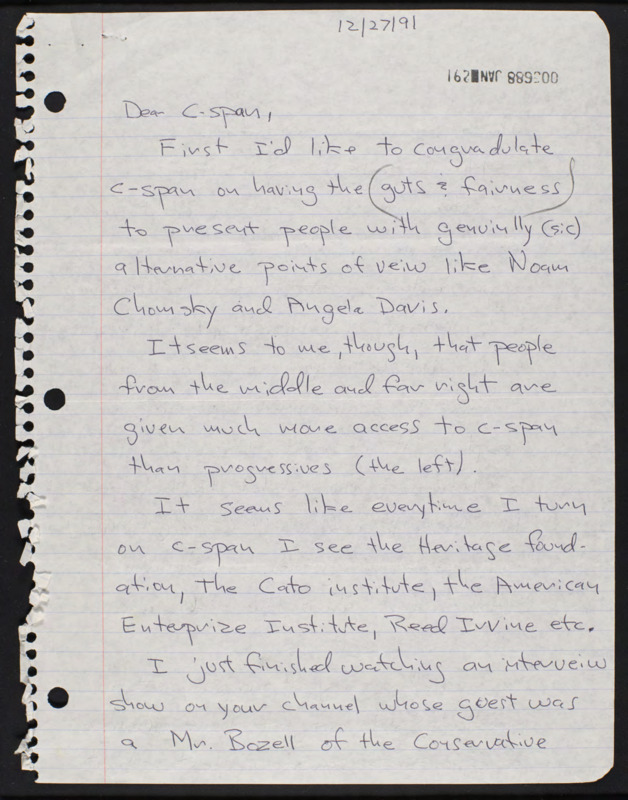 12/27/91
003688 JAN 291
Dear C-span,
First I'd like to congradulate
C-span on having the (guts & fairness)
to present people with genuinlly (sic)
alternative points of veiw like Noam
Chomsky and Angela Davis.
It seems to me, though, that people
from the middle and far right are
given much more access to c-span
than progressives (the left).
It seems like everytime I turn
on c-span I see the Heritage found-
ation, The Cato institute, the American
Enterprize Institute, Reed Irvine etc.
I just finished watching an interveiw
show on your channel whose guest was
a Mr. Bozell of the Conservative